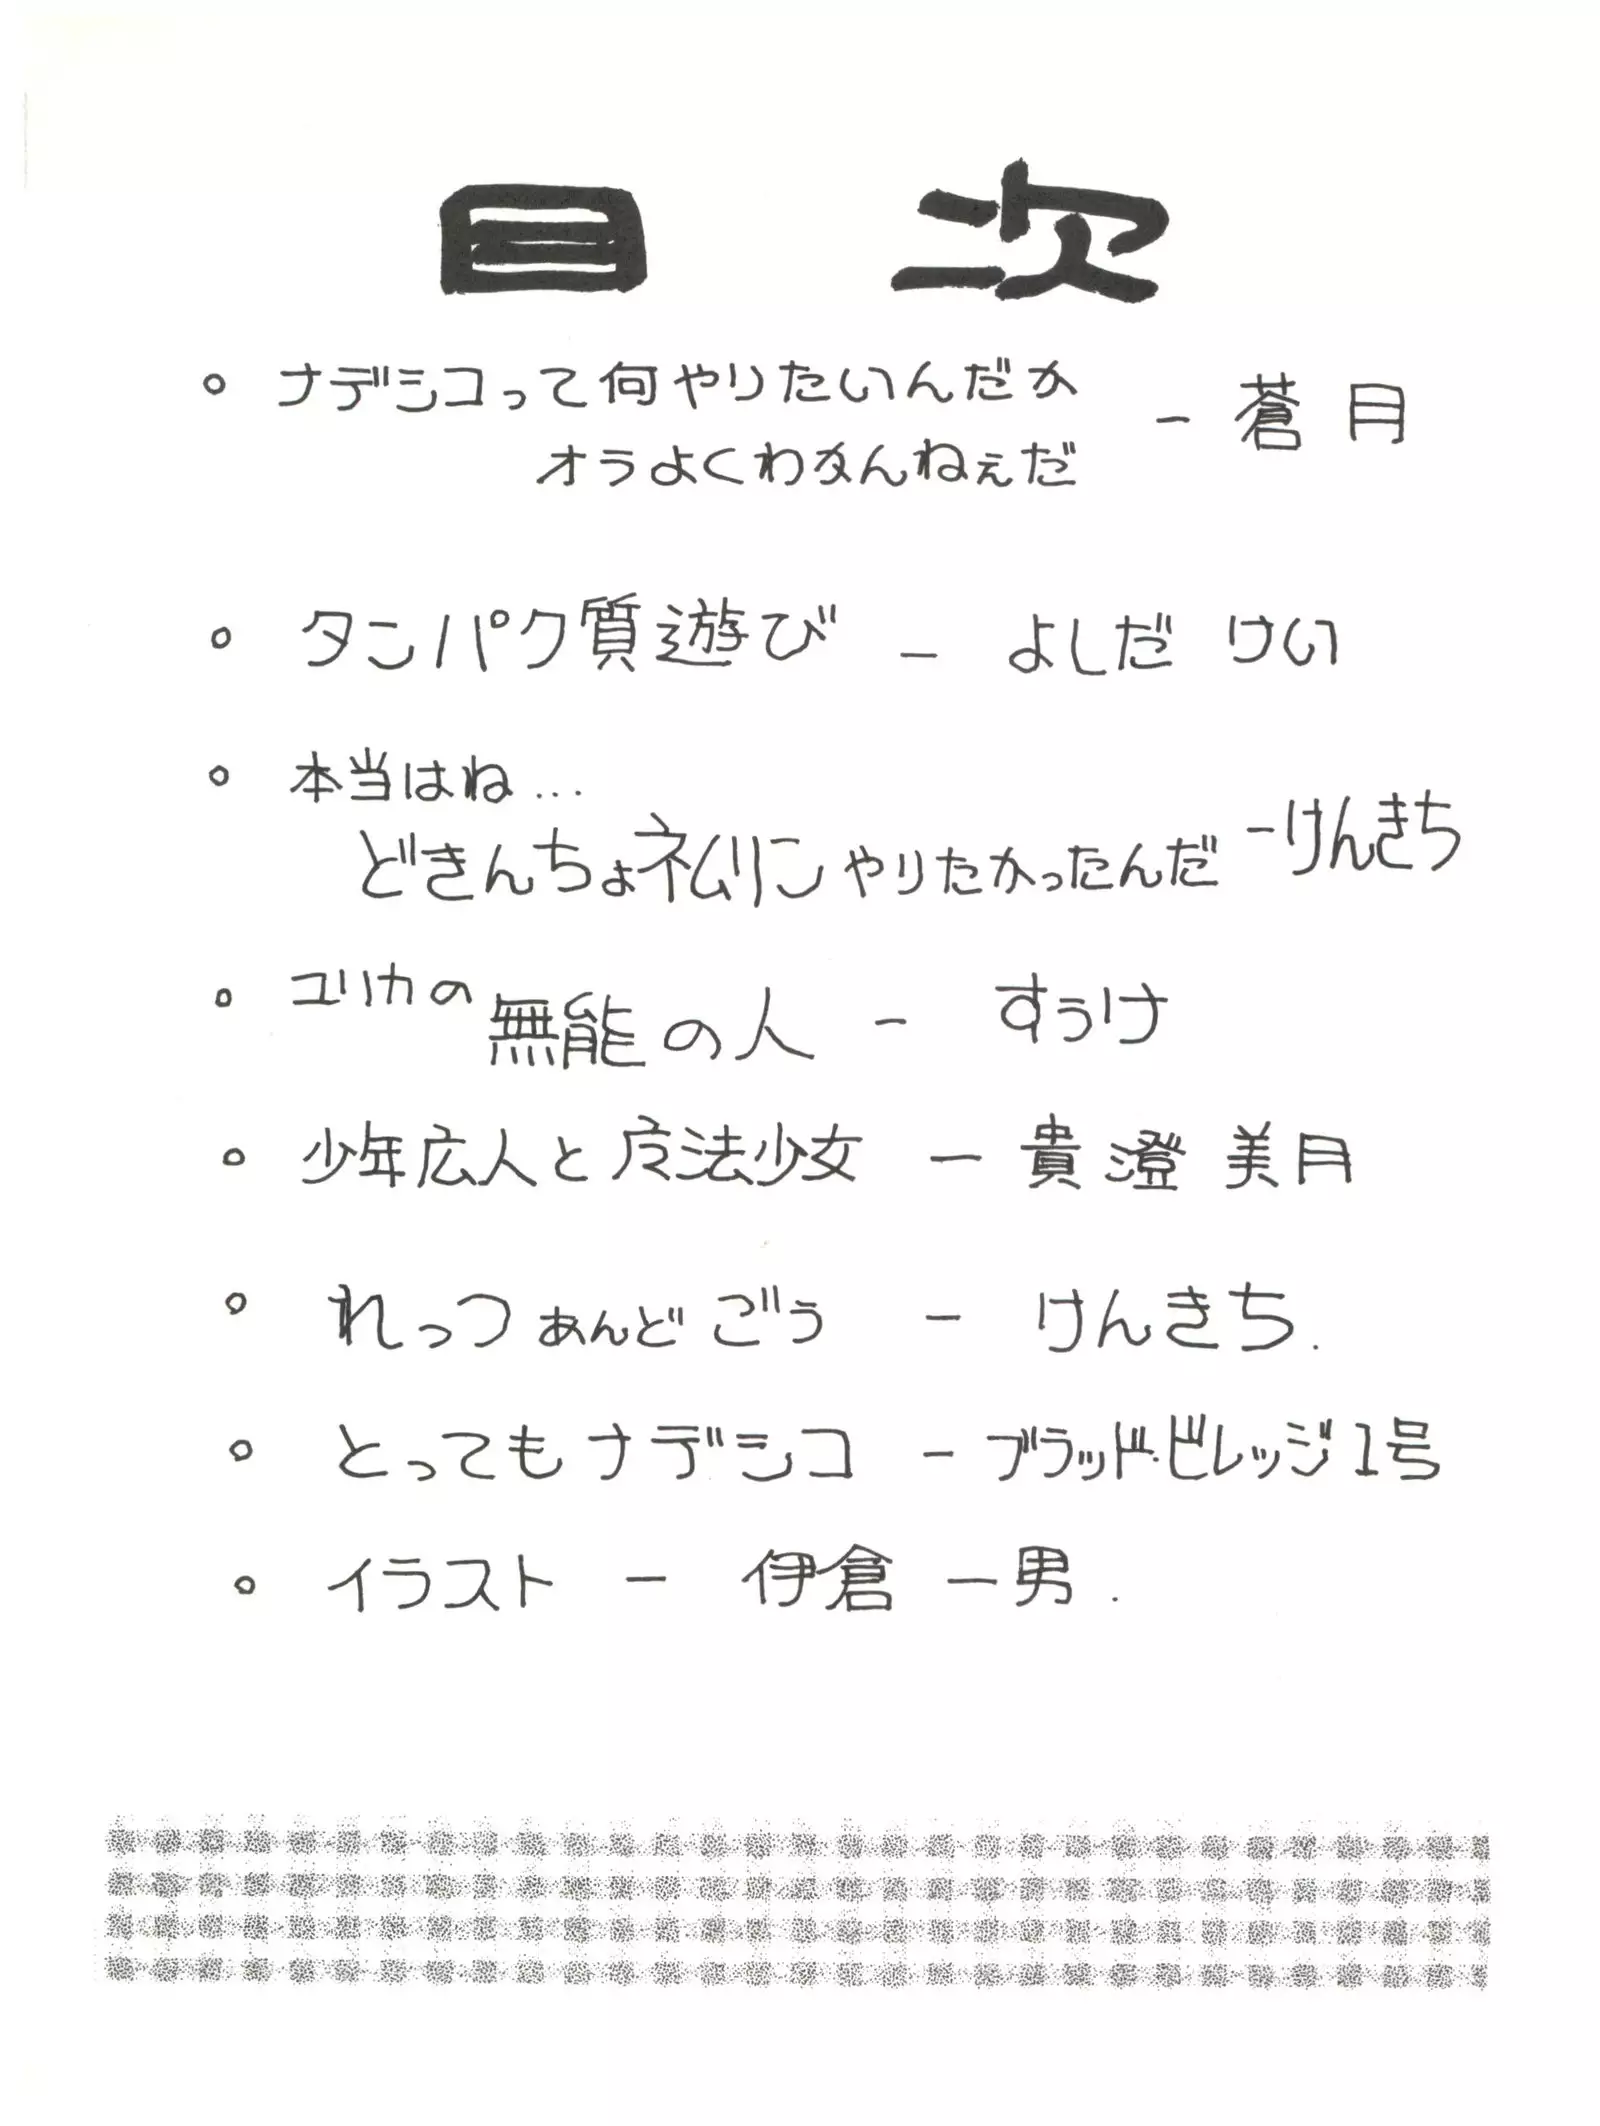 目 次
• ナデシコって何やりたいんだか
オラよくわかんねぇだ - 蒼月
• タンパク質遊び - よしだ けい
• 本当はね...
どきんちょネムリンやりたかったんだ - けんきち
• ユリカの無能の人 - すぅけ
• 少年広人と魔法少女 - 貴澄美月
• れっつ あんど ごう - けんきち.
• とってもナデシコ - ブラッド・ビレッジ1号
• イラスト - 伊倉 一男.